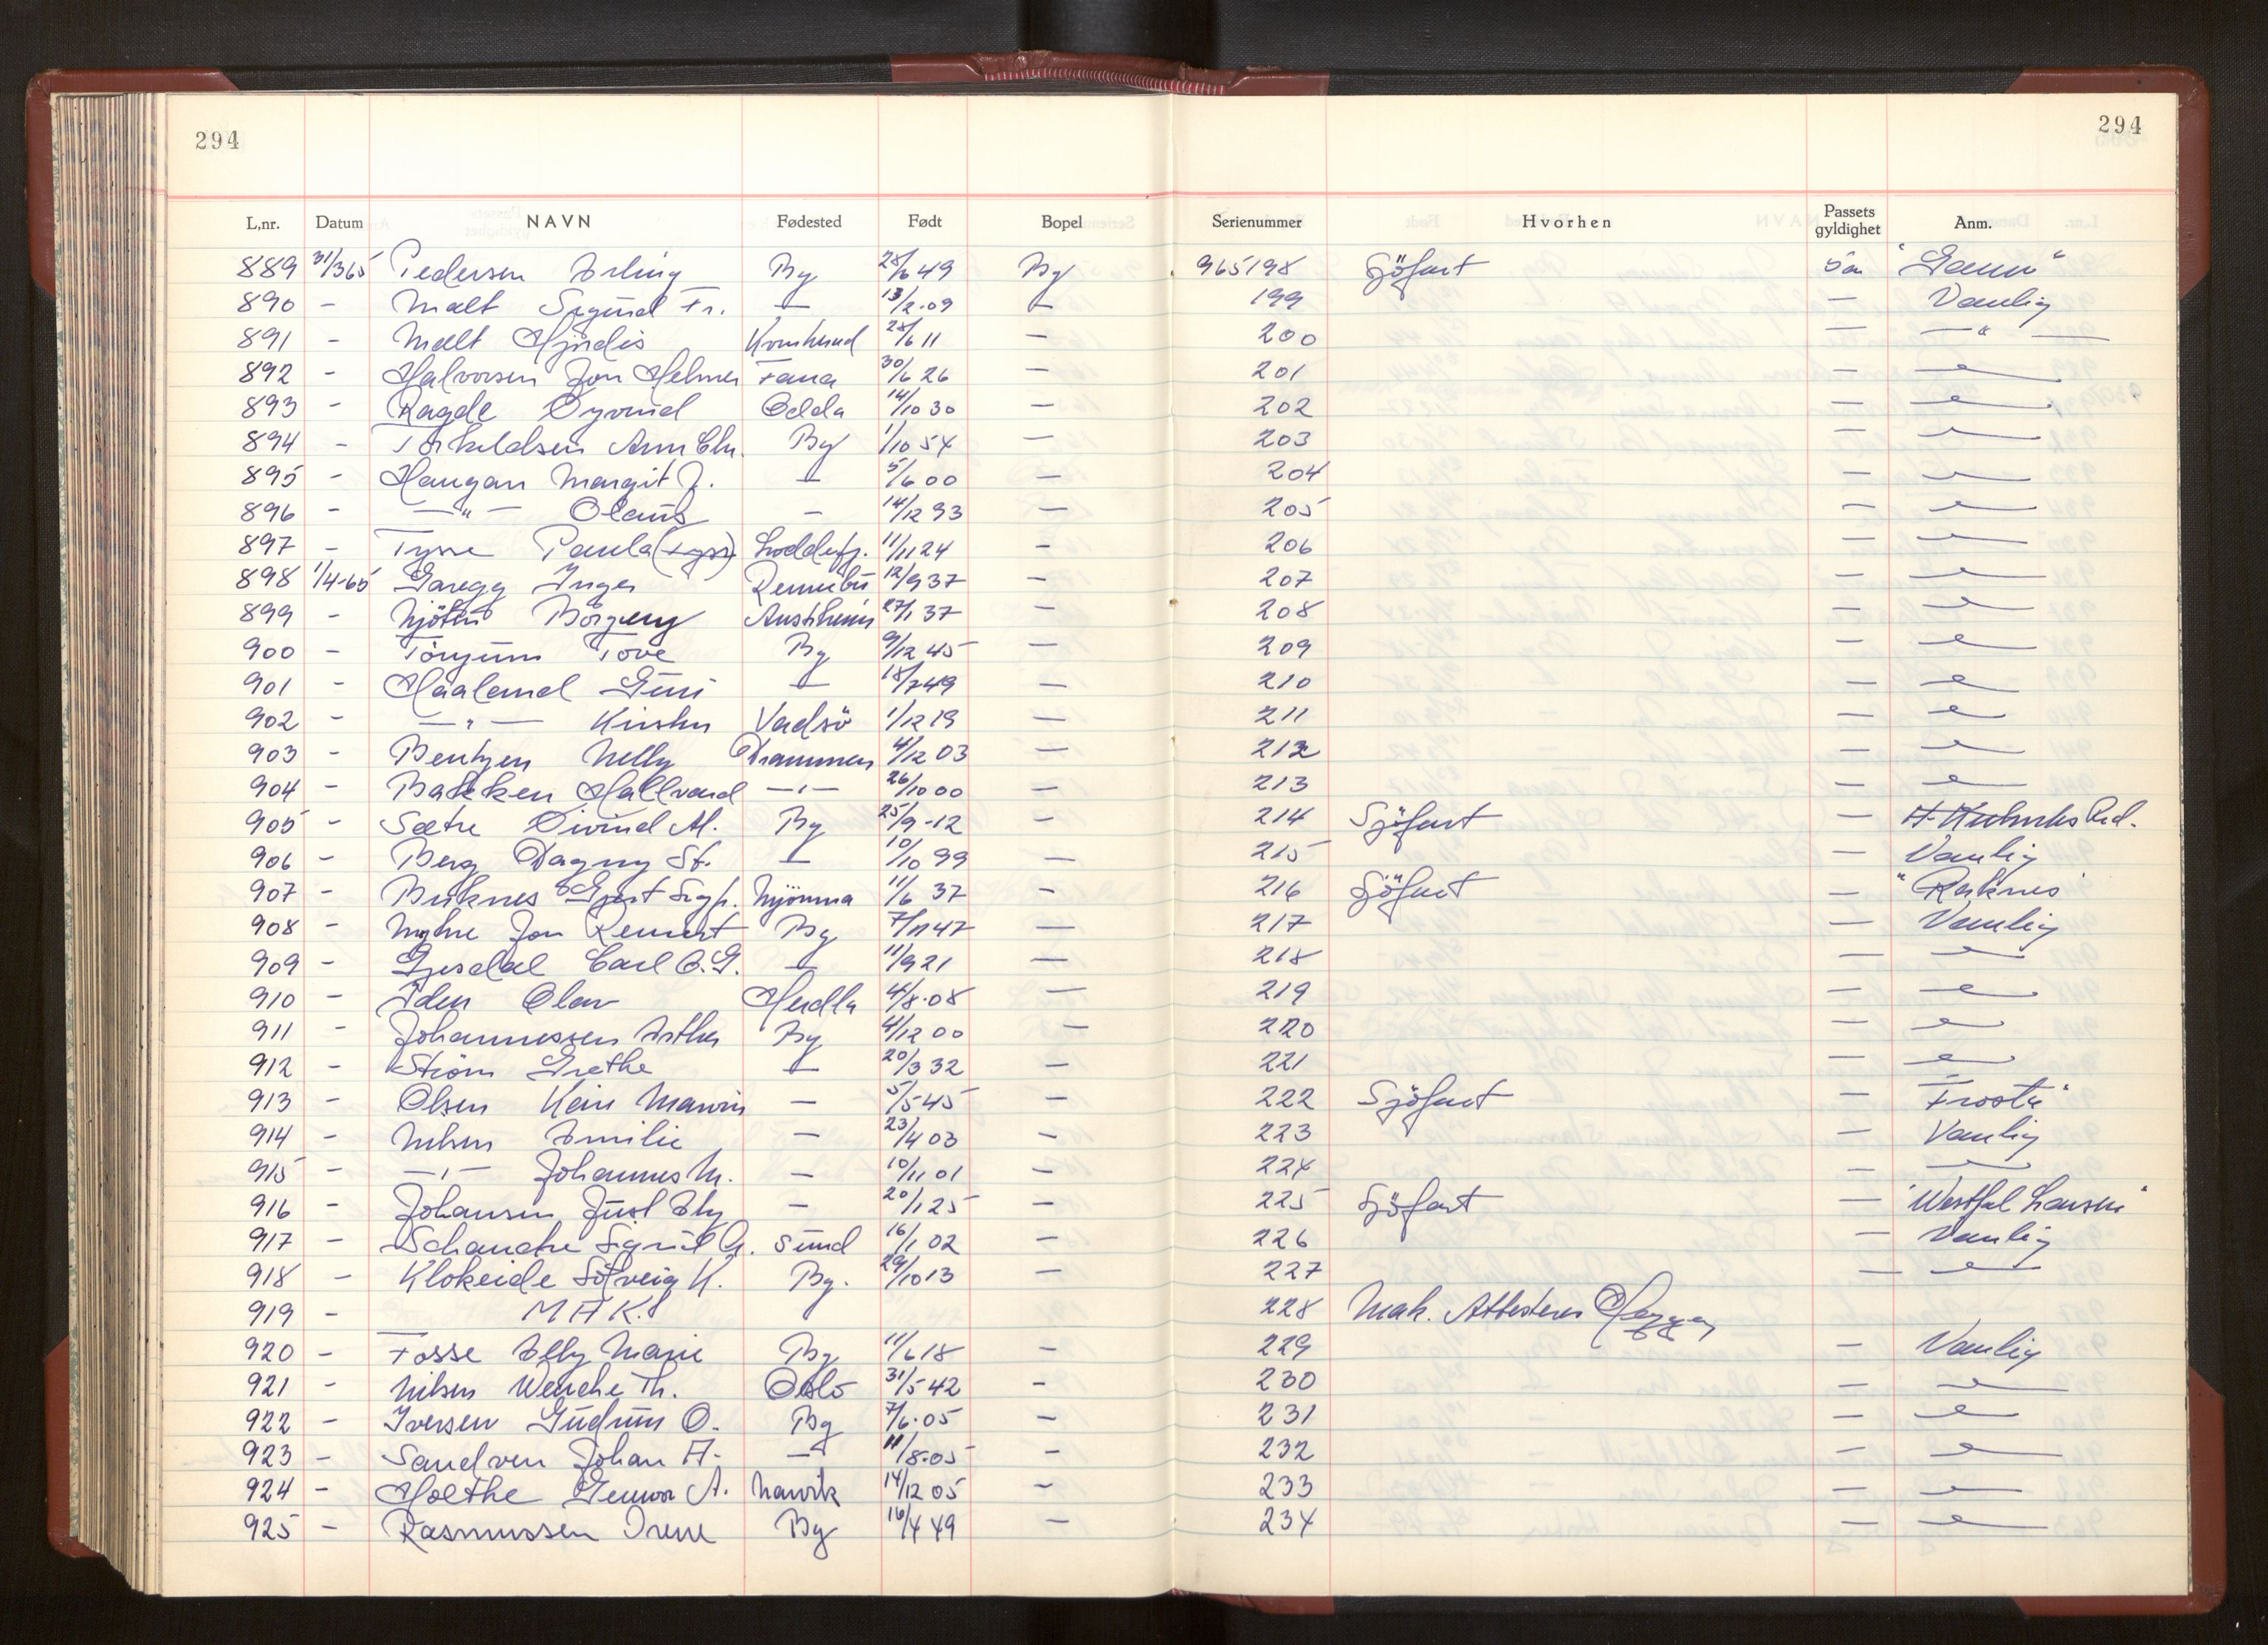 294 294
L.nr. Datum NAVN Fødested Født Bopel Serienummer Hvorhen Passets gyldighet Anm.
889 31/3 65 Pedersen Erling By 28/6 49 By 965198 Sjöfart 5 år
890 - Malt Sigurd Fr. — 13/2.09 — 199 — Vanlig
891 - Malt Hjördis 28/6 11 — 200 — —"—
892 - Halvorsen Jon Helmer Fana 30/6 26 — 201 — —
893 - Ragde Öyvind Odda 14/10 30 — 202 — —
894 - Torkildsen Ann Chr. By 1/10 54 — 203 — —
895 - Haugan Margit J. — 5/6 00 — 204 — —
896 - —"— Olaus — 14/12 93 — 205 — —
897 - Tysse Paula Loddefj. 11/11 24 - 206 — —
898 1/4-65 Garegg Inger Rennebu 12/9 37 - 207 — —
899 - Njöten Borgny Austrheim 27/1 37 — 208 — —
900 - Torjum Tove By 9/12 45 — 209 — —
901 - Haaland Guri — 18/7 49 — 210 — —
902 - —"— Kirsten Vadsö 1/12 19 — 211 — —
903 - Bentzen Nelly Drammen 4/12 03 — 212 — —
904 - Bakken Hallvard —"— 26/10 00 — 213 — —
905 - Sætre Öivind M. By 25/9-12 - 214 Sjöfart —
906 - Berg Dagny St. — 10/10 99 — 215 — Vanlig
907 - Birknes Gjert Sigf. Mjömna 11/6 37 - 216 Sjöfart — "Raknes"
908 - Myhre Jon Rennert By 7/11 47 — 217 — Vanlig
909 - Gjesdal Carl C.G. — 11/9 21 — 218 — —
910 - Iden Olav Herdla 4/8.08 — 219 — —
911 - Johannessen Esther By 4/12 00 — 220 — —
912 - Ström Grethe — 20/3 32 — 221 — —
913 - Olsen Kåre Marvin — 5/5-45 — 222 Sjöfart — "Frosta"
914 - Nilsen Emilie — 23/4 03 - 223 — Vanlig
915 - —"— Johannes M. — 10/11 01 - 224 — —
916 - Johansen Just Ely - 20/1 25 — 225 Sjöfart — "Westfal Larsen"
917 - Schanche Sigrid G. Sund 16/1 02 — 226 — Vanlig
918 - Klokeide Sölveig K. By. 29/10 13 — 227 — —
919 - MAK! 228 Mak. Attesteres
920 - Fosse Elly Marie By 11/6 18 - 229 — Vanlig
921 - Nilsen Wenche Th. Oslo 31/5-42 - 230 — —
922 - Iversen Gudrun O. By 7/6.05 — 231 — —
923 - Sandven Johan A. — 11/8.05 - 232 — —
924 - Holthe Gunvor A. Narvik 14/12 05 - 233 — —
925 - Rasmussen Irene By 16/4 49 — 234 — —